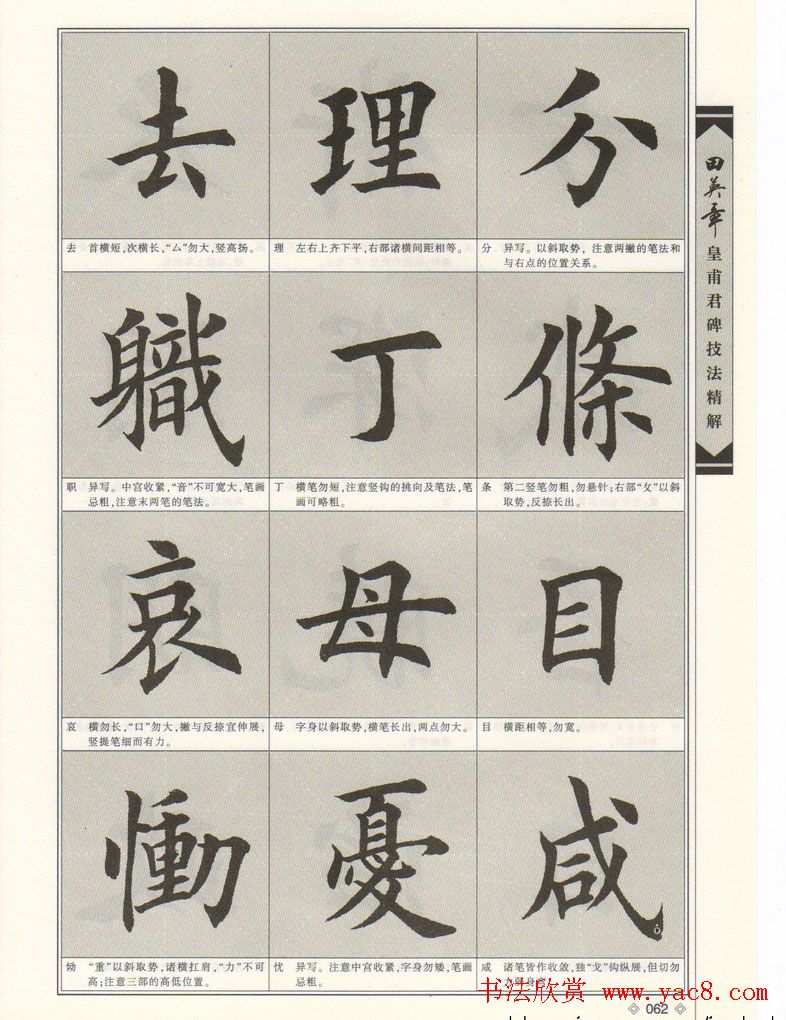 去 理 分
去 首横短,次横长,“厶”勿大,竖高扬。
理 左右上齐下平,右部诸横间距相等。
分 异写。以斜取势,注意两撇的笔法和
与右点的位置关系。
職 丁 條
职 异写。中宫收紧,“音”不可宽大,笔画
忌粗,注意末两笔的笔法。
丁 横笔勿短,注意竖钩的挑向及笔法,笔
画可略粗。
条 第二竖笔勿粗,勿悬针;右部“攵”以斜
取势,反捺长出。
哀 母 目
哀 横勿长,“口”勿大,撇与反捺宜伸展,
竖提笔细而有力。
母 字身以斜取势,横笔长出,两点勿大。
目 横距相等,勿宽。
慟 憂 咸
恸 “重”以斜取势,诸横扛肩,“力”不可
高;注意三部的高低位置。
忧 异写。注意中宫收紧,字身勿矮,笔画
忌粗。
咸 诸笔皆作收敛,独“戈”钩纵展,但切勿
田英章
皇甫君碑技法精解
书法欣赏 www.yac8.com
062